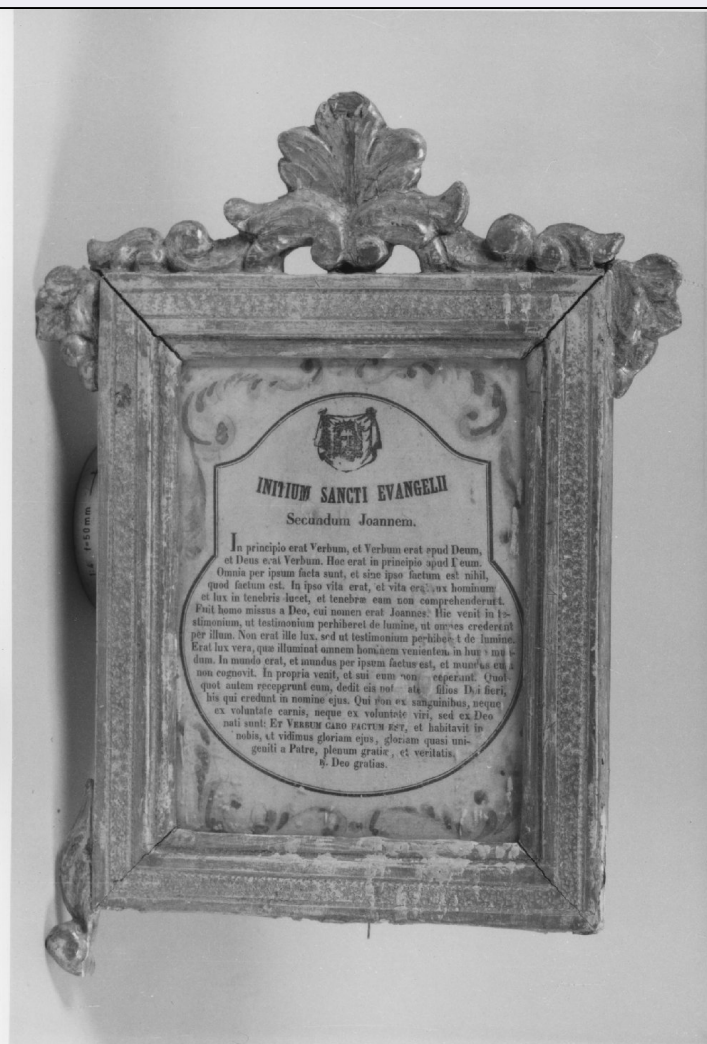 INITIUM SANCTI EVANGELII
Secundum Joannem.
In principio erat Verbum, et Verbum erat apud Deum,
et Deus erat Verbum. Hoc erat in principio apud Deum.
Omnia per ipsum facta sunt, et sine ipso factum est nihil,
quod factum est. In ipso vita erat, et vita erat lux hominum
et lux in tenebris lucet, et tenebræ eam non comprehenderunt.
Fuit homo missus a Deo, cui nomen erat Joannes. Hic venit in te-
stimonium, ut testimonium perhiberet de lumine, ut omnes crederent
per illum. Non erat ille lux, sed ut testimonium perhiberet de lumine.
Erat lux vera, quæ illuminat omnem hominem venientem in hunc mun-
dum. In mundo erat, et mundus per ipsum factus est, et mundus eum
non cognovit. In propria venit, et sui eum non receperunt. Quot-
quot autem receperunt eum, dedit eis potestatem filios Dei fieri,
his qui credunt in nomine ejus. Qui non ex sanguinibus, neque
ex voluntate carnis, neque ex voluntate viri, sed ex Deo
nati sunt: ET VERBUM CARO FACTUM EST, et habitavit in
nobis, et vidimus gloriam ejus, gloriam quasi uni-
geniti a Patre, plenum gratiæ, et veritatis.
℟. Deo gratias.
f=50mm